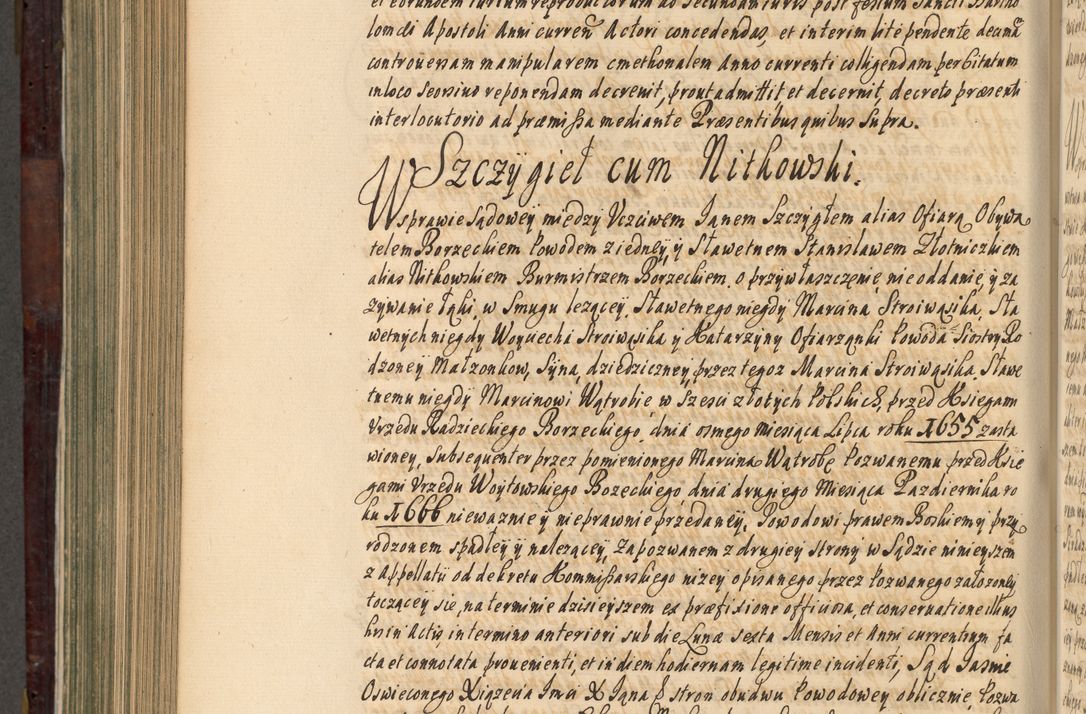 et eorundem iurium reproductorum ad secundam iuris post festum Sancti Bartho
lomæi Apostoli Anni curren Actori concedendas, et interim lite pendente decima
controuersam manipularem cmethonalem Anno currenti colligendam per Citatum
in loco seorsiuo reponendam decreuit, prout admittit et decernit, decreto præsenti
interlocutorio ad præmissa mediante Præsentibus quibus supra.
Szczÿgieł cum Nitkowski.
W sprawie sądoweÿ miedzy Vczciwem Janem Szczygłem alias Ofiarą Obywa
telem Borzeckiem Powodem z iedneÿ, ÿ Sławetnem Stanisławem Złotniczkiem
alias Nitkowskiem Burmistrzem Borzeckiem, o przywłaszczenie, nie oddanie, ÿ za
zÿwanie łąki, w Smugu lezącey, Sławetnego niegdy Marcina Stroiwąsika, Sła
wetnych niegdy Woyciecha Stroiwąsika ÿ Katarzyny Ofiarzanki Powoda Siostry Ro
dzoney Małzonkow, Syna, dziedziczneÿ, przez tegoz Marcina Stroiwąsika, Sławe
tnemu niegdy Marcinowi Wątrobie w Szesci złotych Polskich, przed Ksiegami
Vrzedu Radzieckiego Borzeckiego, dnia osmego miesiąca Lipca roku 1655 zasta
wioney, subsequenter przez pomienionego Marcina Wątrobę Pozwanemu przed Ksie
gami Vrzedu Woytowskiego Bozeckiego, dnia drugiego Miesiąca Pazdziernika ro
ku 1666 niewaznie ÿ nieprawnie przedaneÿ, Powodowi prawem Boskiem ÿ przy
rodzonem spadłeÿ ÿ nalezączeÿ, Zapozwanem z drugiey strony w Sądzie ninieyszem
z Appellatÿ od dekretu Kommissarskiego nizey opisanego przez Pozwanego załozoneÿ
toczączeÿ sie, na terminie dzisieyszem ex præfixione officiosa, et conseruatione illius
hris in Actis, in termino anteriori sub die Lunæ sexta Mensis et Anni currentium fa
cta et connotata prouenienti, et in diem hodiernam legitime incidenti, Sąd Jasnie
Oswieconego Xiązęcia Jmci X Jana P stron obudwu Powodowey oblicznie, Pozwa